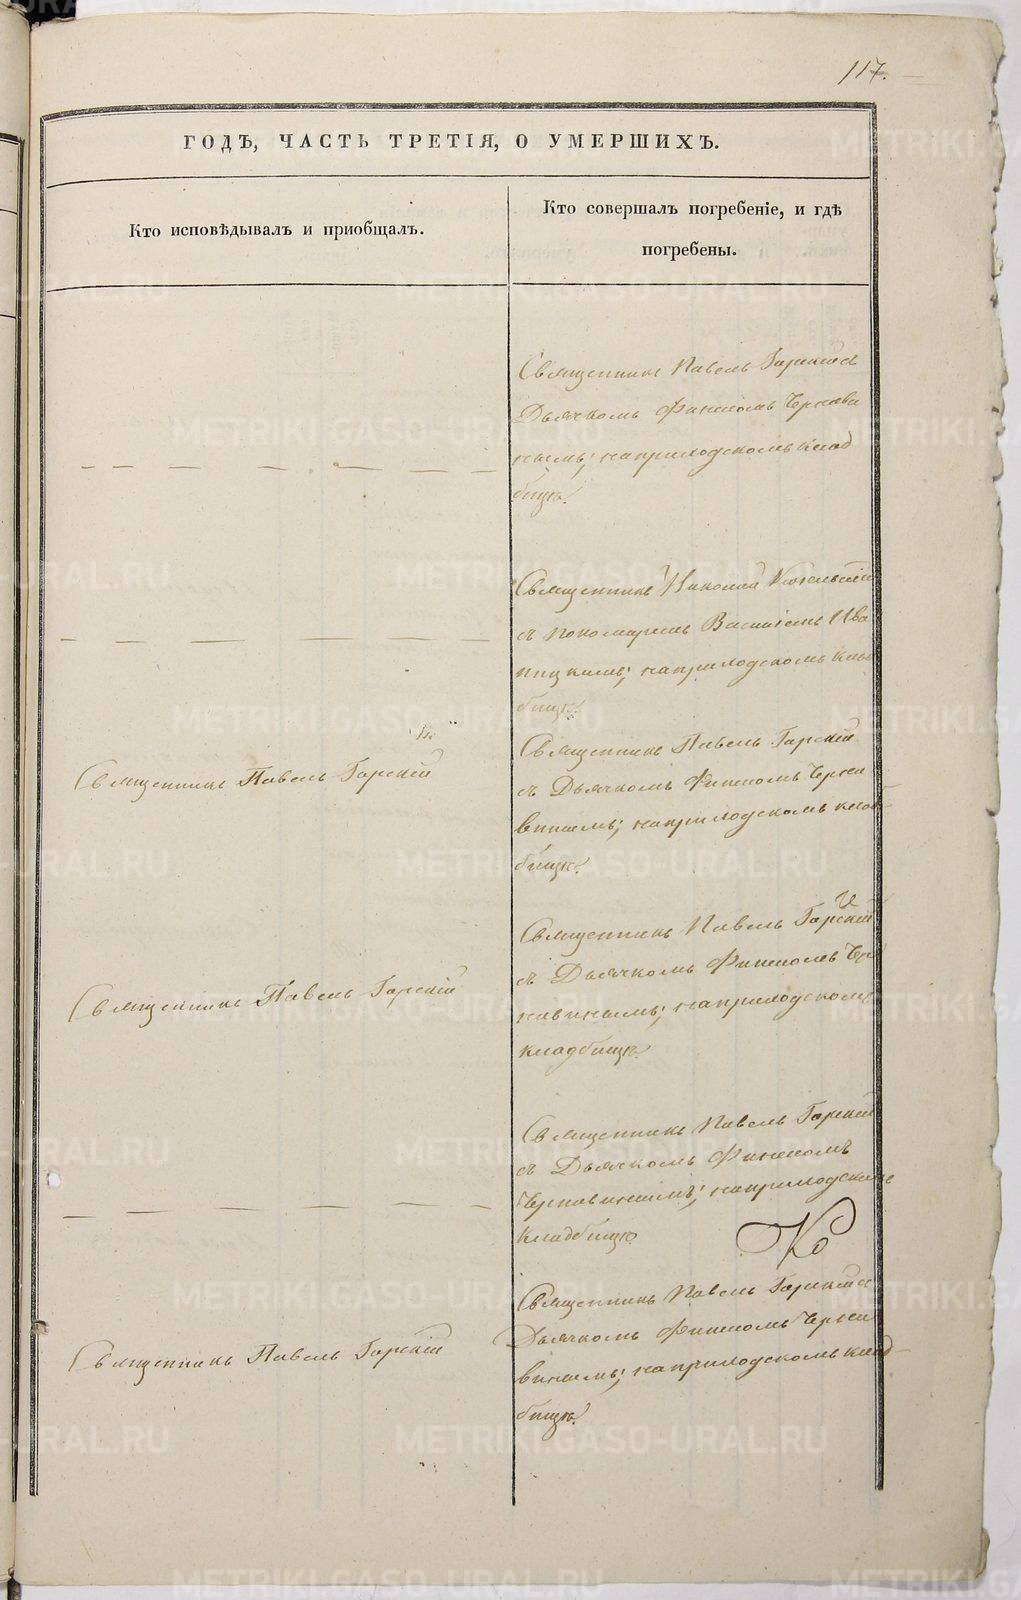 117.
ГОДЪ, ЧАСТЬ ТРЕТІЯ, О УМЕРШИХЪ.
Кто исповѣдывалъ и пріобщалъ.
Кто совершалъ погребеніе, и гдѣ
погребены.
Священникъ Павелъ Горскій съ
Дьячкомъ Финеіомъ Чернави
нымъ; на приходскомъ клад
бищѣ.
Священникъ Николай
съ пономаремъ Василіемъ Ива
ницкимъ; на приходскомъ клад
бищѣ.
Священникъ Павелъ Горскій
Священникъ Павелъ Горскій
съ Дьячкомъ Финеіомъ Черна
винымъ; на приходскомъ клад-
бищѣ.
Священникъ Павелъ Горскій
Священникъ Павелъ Горскій
съ Дьячкомъ Финеіомъ Чер
навинымъ; на приходскомъ
кладбищѣ.
Священникъ Павелъ Горскій
съ Дьячкомъ Финеіомъ
Чернавинымъ; на приходскомъ
кладбищѣ
Ко
Священникъ Павелъ Горскій
Священникъ Павелъ Горскій съ
Дьячкомъ Финеіомъ Черна
винымъ; на приходскомъ клад-
бищѣ.
METRIKI.GASO-URAL.RU